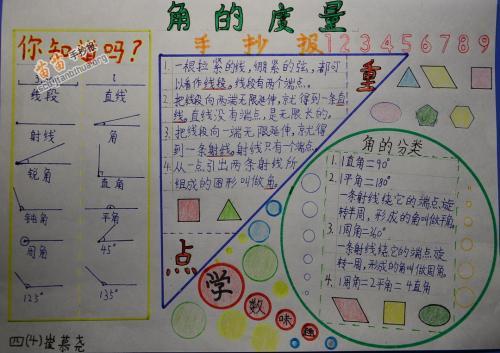 角的度量
手抄报
1 2 3 4 5 6 7 8 9
你知道吗?
线段 直线
射线 角
锐角 直角
钝角 平角
周角 45°
125° 135°
四(4)崔慕尧
重
点
1. 一根拉紧的线,绷紧的弦,都可
以看作线段,线段有两个端点。
2. 把线段向两端无限延伸,就得到一条直
线。直线没有端点,是无限长的。
3. 把线段向一端无限延伸,就得
到一条射线。射线只有一个端点。
4. 从一点引出两条射线所
组成的图形叫做角。
角的分类
1. 1直角=90°
2. 1平角=180°
一条射线绕它的端点旋
转半周,形成的角叫做平角。
3. 1周角=360°
一条射线绕它的端点旋
转一周,形成的角叫做周角。
4. 1周角=2平角=4直角
学
数
味